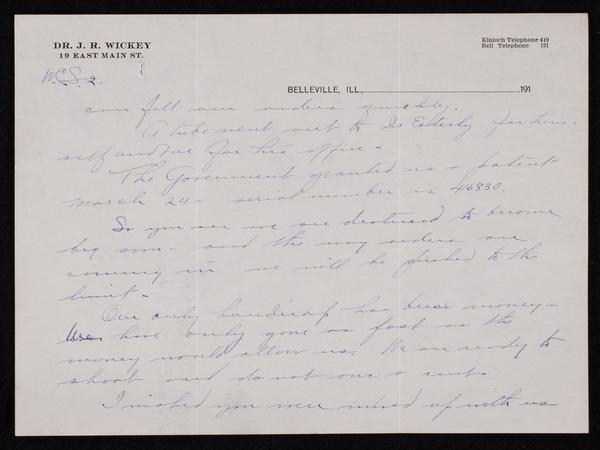 DR. J. R. WICKEY
19 EAST MAIN ST.
Kinloch Telephone 419
Bell Telephone 131
W.C.S. 2.
BELLEVILLE, ILL., 191
can fill our orders quickly.
A tube went out to Dr for him-
self and one for his office -
The Government granted us a patent
March 24 - serial number is 46830.
So you see we are destined to become
big soon - and the way orders are
coming in we will be pushed to the
limit.
Our only handicap has been money -
We have only gone as fast as the
money would allow us. We are ready to
shoot and do not owe a cent.
I wished you were mixed up with us